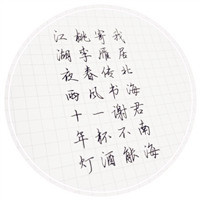 我居北海君南海
寄雁传书谢不能
桃李春风一杯酒
江湖夜雨十年灯